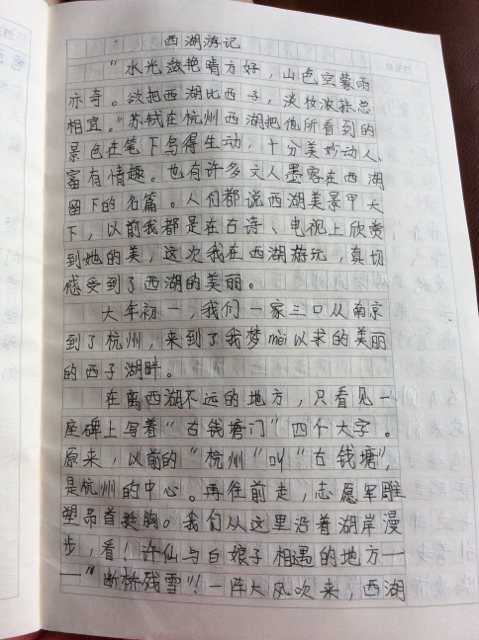 西湖游记
“水光潋艳晴方好，山色空蒙雨
亦奇。欲把西湖比西子，淡妆浓抹总
相宜。”苏轼在杭州西湖把他所看到的
景色在笔下写得生动，十分美妙动人、
富有情趣。也有许多文人墨客在西湖
留下的名篇。人们都说西湖美景甲天
下，以前我都是在古诗、电视上欣赏
到她的美，这次我在西湖游玩，真切
感受到了西湖的美丽。
大年初一，我们一家三口从南京
到了杭州，来到了我梦mèi以求的美丽
的西子湖畔。
在离西湖不远的地方，只看见一
座碑上写着“古钱塘门”四个大字。
原来，以前的“杭州”叫“古钱塘”，
是杭州的中心。再往前走，志愿军雕
塑昂首挺胸。我们从这里沿着湖岸漫
步，看！许仙与白娘子相遇的地方—
—“断桥残雪”！一阵大风吹来，西湖